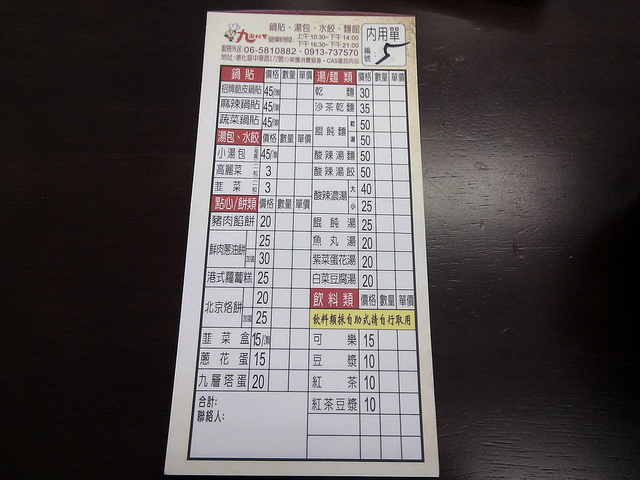 鍋貼、湯包、水餃、麵館
內用單
九
營業時間: 上午10:30~下午14:00
下午16:30~下午21:00
服務外送 06-5810882・0913-737570
編號: 5
地址:善化區中華路172號
鍋貼 價格 數量 單價
招牌脆皮鍋貼 45
麻辣鍋貼 45
蔬菜鍋貼 45
湯包、水餃 價格 數量 單價
小湯包 45
高麗菜 3
韮菜 3
點心/餅類 價格 數量 單價
豬肉餡餅 20
鮮肉蔥油餅 25
30
港式蘿蔔糕 25
北京烙餅 20
25
韮菜盒 15
蔥花蛋 15
九層塔蛋 20
合計:
聯絡人:
湯/麵類 價格 數量 單價
乾麵 30
沙茶乾麵 35
餛飩麵 乾 50
湯 50
酸辣湯麵 50
酸辣湯餃 50
酸辣濃湯 大 40
小 25
餛飩湯 25
魚丸湯 20
紫菜蛋花湯 20
白菜豆腐湯 20
飲料類 價格 數量 單價
飲料類採自助式請自行取用
可樂 15
豆漿 10
紅茶 10
紅茶豆漿 10